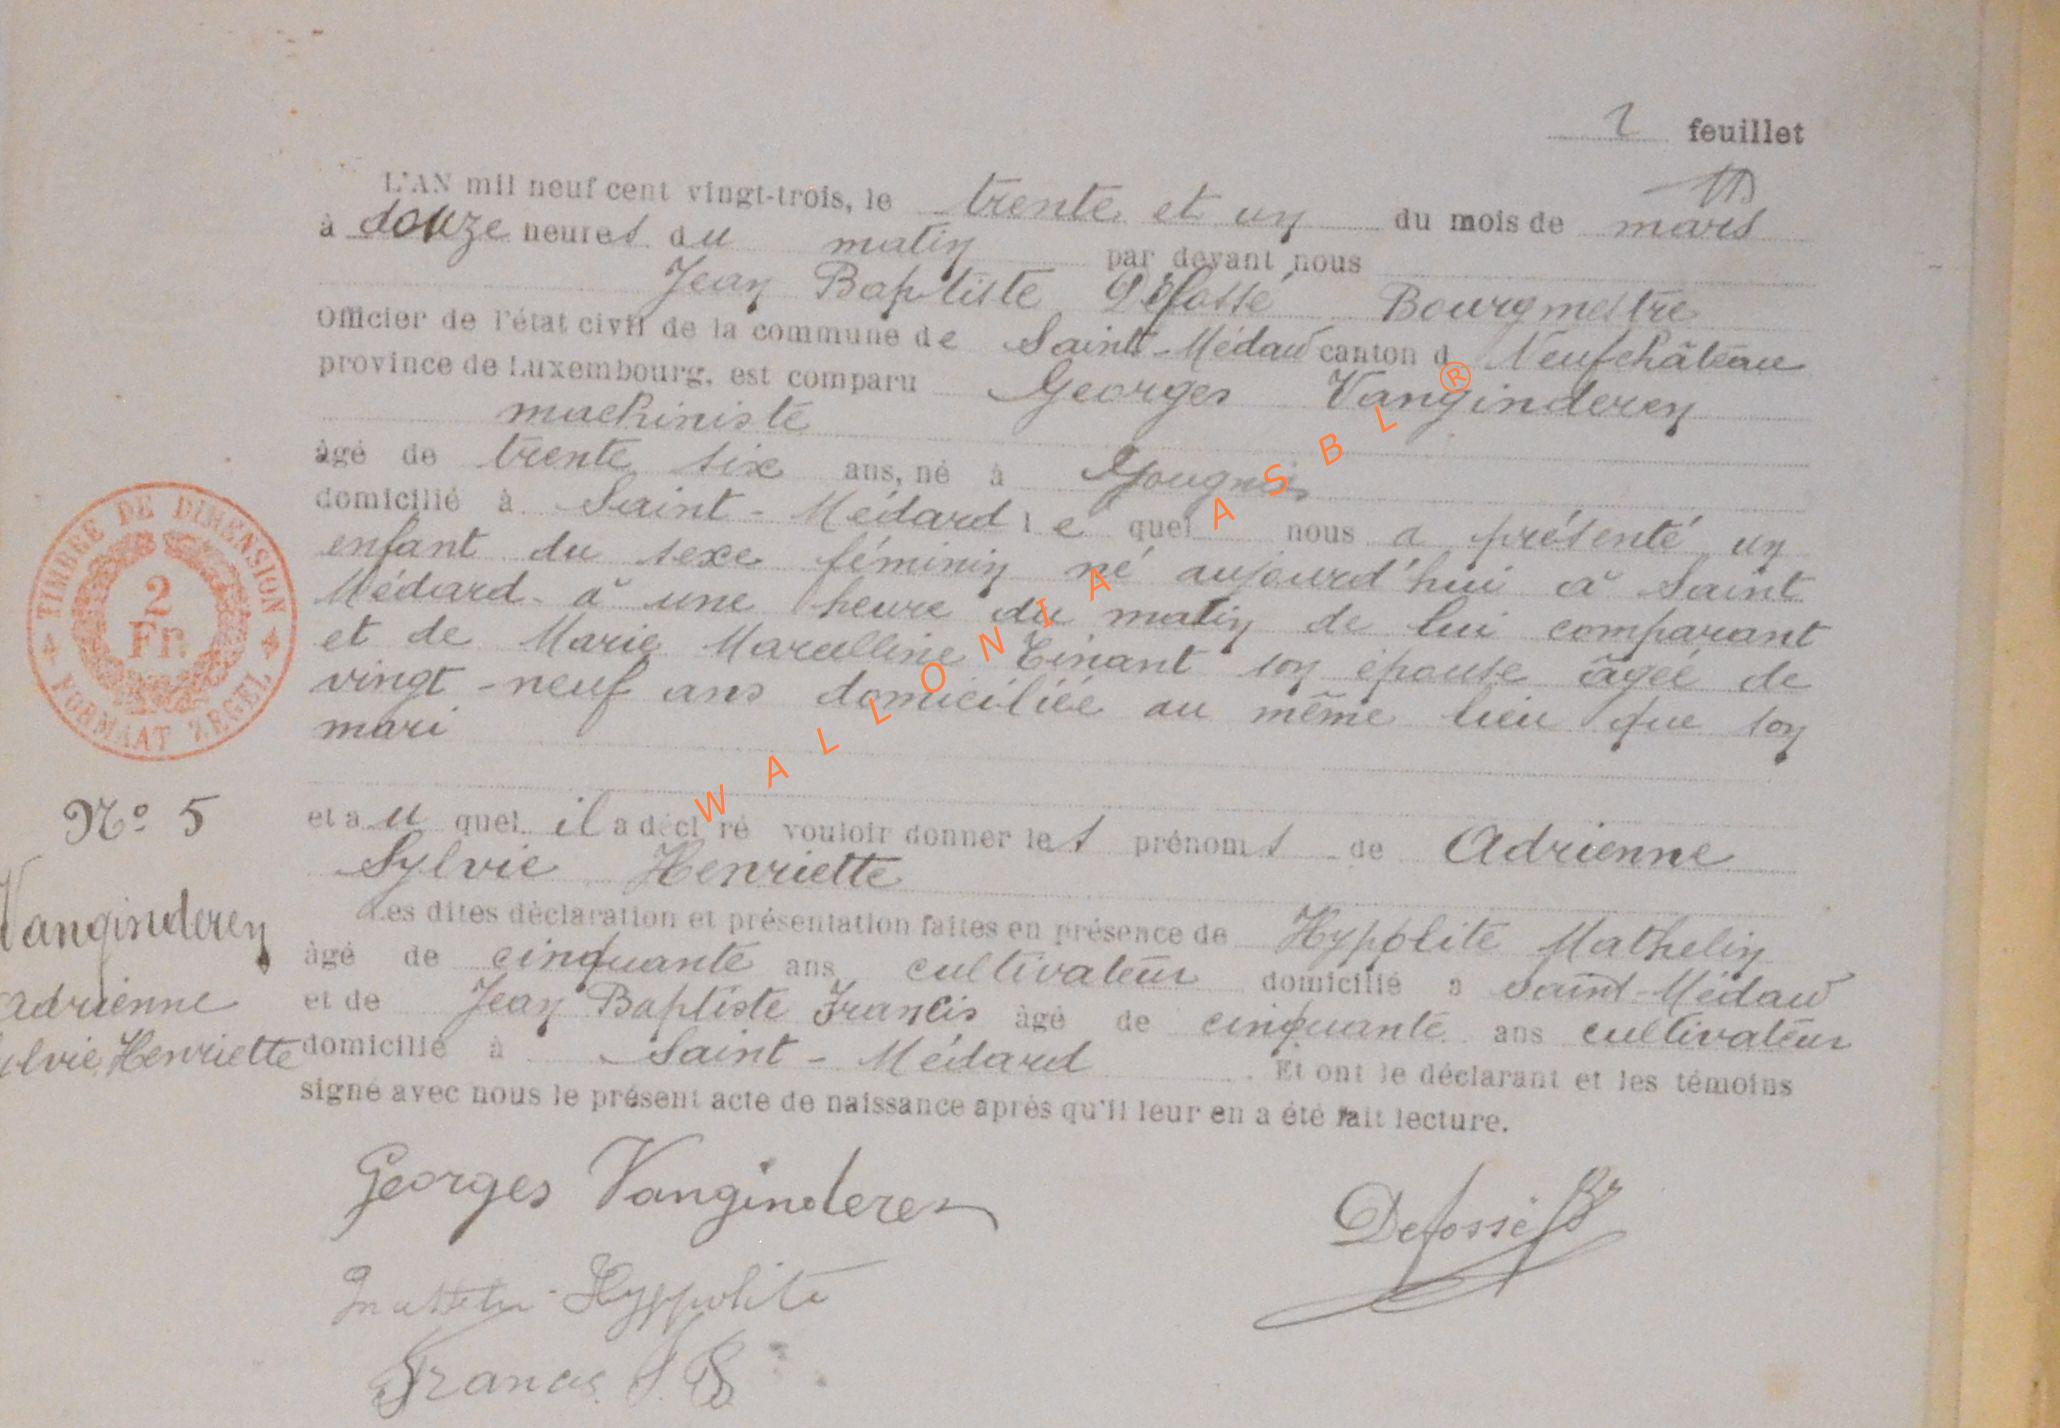 2 feuillet
L'AN mil neuf cent vingt-trois, le trente et un du mois de mars
à douze heures du matin par devant nous
Jean Baptiste Défossé Bourgmestre
Officier de l'état civil de la commune de Saint-Médard canton d Neufchâteau
province de Luxembourg, est comparu Georges Vanginderen
machiniste
âgé de trente six ans, né à Gougnies
domicilié à Saint-Médard le quel nous a présenté un
enfant du sexe féminin né aujourd'hui à Saint
Médard à une heure du matin de lui comparant
et de Marie Marcelline Tinant son épouse âgée de
vingt-neuf ans domiciliée au même lieu que son
mari
TIMBRE DE DIMENSION
2
FR
FORMAAT ZEGEL
No 5
et au quel il a déclaré vouloir donner les prénoms de Adrienne
Sylvie Henriette
Vanginderen
Adrienne
Sylvie Henriette
Les dites déclaration et présentation faites en présence de Hyppolite Mathelin
âgé de cinquante ans cultivateur domicilié à Saint-Médard
et de Jean Baptiste Francis âgé de cinquante ans cultivateur
domicilié à Saint-Médard. Et ont le déclarant et les témoins
signé avec nous le présent acte de naissance après qu'il leur en a été fait lecture.
Georges Vanginderen
Defossé JB
Mathelin Hyppolite
Francis J. B
WALLONIA ASBL ®